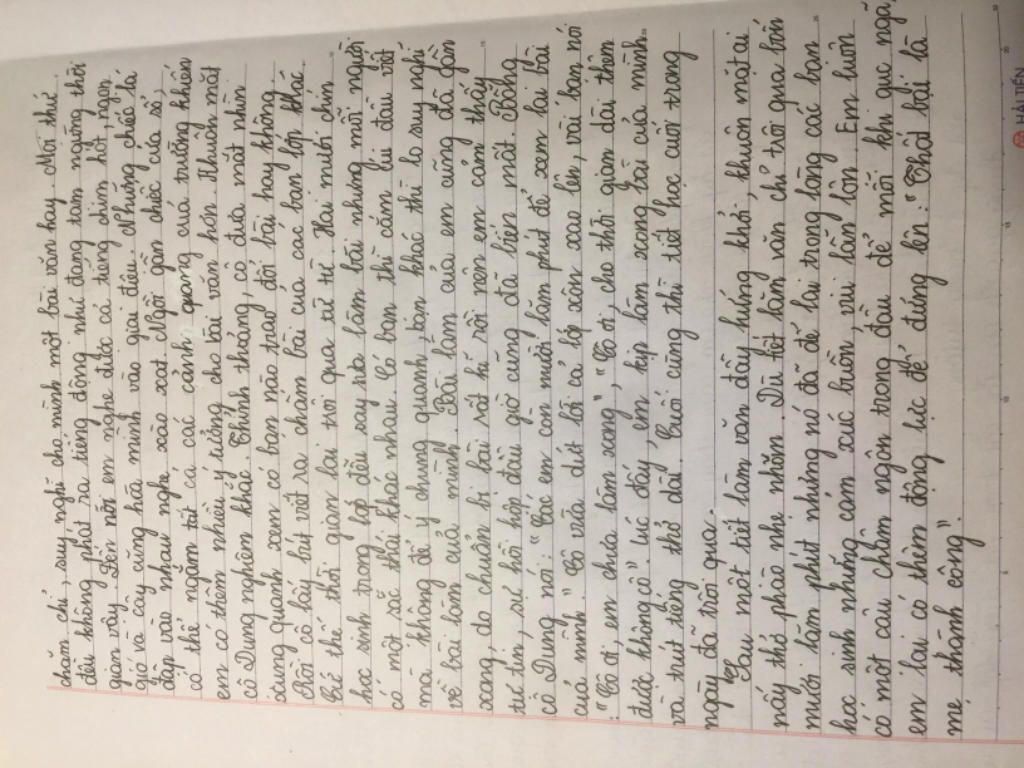 chăm chỉ, suy nghĩ cho mình một bài văn hay. Mọi thứ
đều không phát ra tiếng động như đang tạm ngừng thời
gian vậy. Đến nỗi em nghe được cả tiếng chim hót, ngọn
gió và cây cùng hòa mình vào giai điệu. Những chiếc lá
đập vào nhau nghe xào xạt. Ngồi gần chiếc cửa sổ,
có thể ngắm tất cả các cảnh quang của trường khiến
em có thêm nhiều ý tưởng cho bài văn hơn. Khuôn mặt
cô Dung nghiêm khắc. Thỉnh thoảng, cô đưa mắt nhìn
xung quanh xem có bạn nào trao đổi bài hay không.
Rồi cô lấy bút viết ra chấm bài của các bạn lớp khác.
Cứ thế thời gian lại trôi qua từ từ. Hai mươi chín
học sinh trong lớp đều say sưa làm bài nhưng mỗi người
có một sắc thái khác nhau. Có bạn thì cắm cúi đầu viết
mà không để ý chung quanh, bạn khác thì lo suy nghĩ
về bài làm của mình. Bài làm của em cũng đã dần
xong, do chuẩn bị bài rất kĩ rồi nên em cảm thấy
tự tin, sự hồi hộp đầu giờ cũng đã biến mất. Bỗng
cô Dung nói: "Các em còn mười lăm phút để xem lại bài
của mình". Cô vừa dứt lời cả lớp xôn xao lên, vài bạn nói
: "Cô ơi, em chưa làm xong", "Cô ơi, cho thời gian dài thêm
được không cô". Lúc đấy, em kịp làm xong bài của mình
và trút tiếng thở dài. Cuối cùng thì tiết học cuối trong
ngày đã trôi qua.
Sau một tiết làm văn đầy hứng khởi, khuôn mặt ai
nấy thở phào nhẹ nhõm. Dù tiết làm văn chỉ trôi qua bốn
mươi lăm phút nhưng nó đã để lại trong lòng các bạn
học sinh những cảm xúc buồn, vui lẫn lộn. Em luôn
có một câu châm ngôn trong đầu để mỗi khi gục ngã,
em lại có thêm động lực để đứng lên: "Thất bại là
mẹ thành công".
HẢI TIẾN